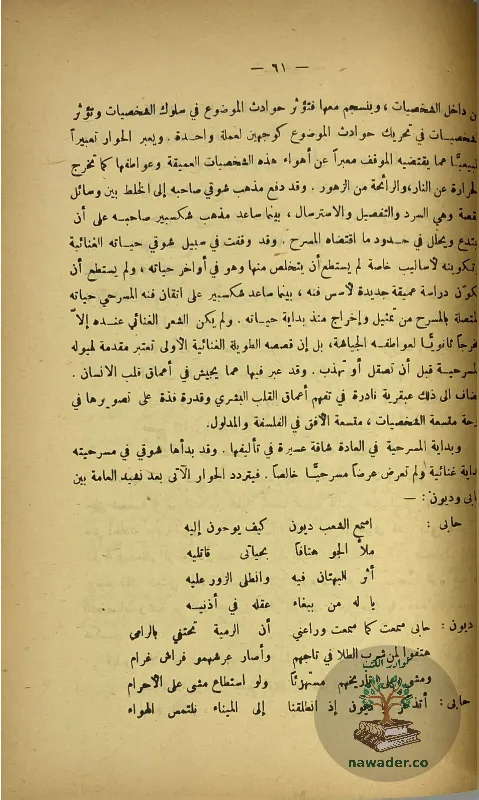 — ٦١ —
من داخل الشخصيات ، وينسجم معها فتؤثر حوادث الموضوع في سلوك الشخصيات وتؤثر
الشخصيات في تحريك حوادث الموضوع كوجهين لعملة واحدة . ويعبر الحوار تعبيراً
طبيعيًّا مما يقتضيه الموقف معبراً عن أهواء هذه الشخصيات العميقة وعواطفها كما تخرج
الحرارة عن النار، والرائحة من الزهور . وقد دفع مذهب شوقي صاحبه إلى الخلط بين وسائل
القصة وهي السرد والتفصيل والاسترسال ، بينما ساعد مذهب شكسبير صاحبه على أن
يبتدع ويحلل في حدود ما اقتضاه المسرح . وقد وقفت في سبيل شوقي حياته الغنائية
وتكوينه لأساليب خاصة لم يستطع أن يتخلص منها وهو في أواخر حياته ، ولم يستطع أن
يكوّن دراسة عميقة جديدة لأسس فنه ، بينما ساعد شكسبير على اتقان فنه المسرحي حياته
المتصلة بالمسرح من تمثيل وإخراج منذ بداية حياته . ولم يكن الشعر الغنائي عنده إلاّ
فرجاً ثانويًّا لعواطفه الجياشة، بل إن قصصه الطويلة الغنائية الأولى تعتبر مقدمة لميوله
المسرحية قبل أن تصقل أو تهذب . وقد عبر فيها عما يجيش في أعماق قلب الانسان .
يضاف الى ذلك عبقرية نادرة في تفهم أعماق القلب البشري وقدرة فذة على تصويرها في
متسعة الشخصيات ، متسعة الأفق في الفلسفة والمدلول.
وبداية المسرحية في العادة شاقة عسيرة في تأليفها . وقد بدأها شوقي في مسرحيته
بداية غنائية ولم تعرض عرضاً مسرحيًّا خالصاً . فيتردد الحوار الآتى بعد نشيد العامة بين
حابى وديون : —
حابى : اسمع الشعب ديون كيف يوحون إليه
ملأ الجو هتافاً بحياتى قاتليه
أثر البهتان فيه وانطلى الزور عليه
يا له من ببغاء عقله في أذنيه
ديون : حابى سمعت كما سمعت وراعني أن الرمية تحتفي بالرامى
هتفوا لمن شرب الطلا في تاجهم وأصار عرشهمو فراش غرام
ومشى على تاريخهم مستهزئاً ولو استطاع مشى على الأهرام
حابى : أتذكر ديون إذ انطلقنا إلى الميناء نلتمس الهواء
نوادر الكتب
nawader.co